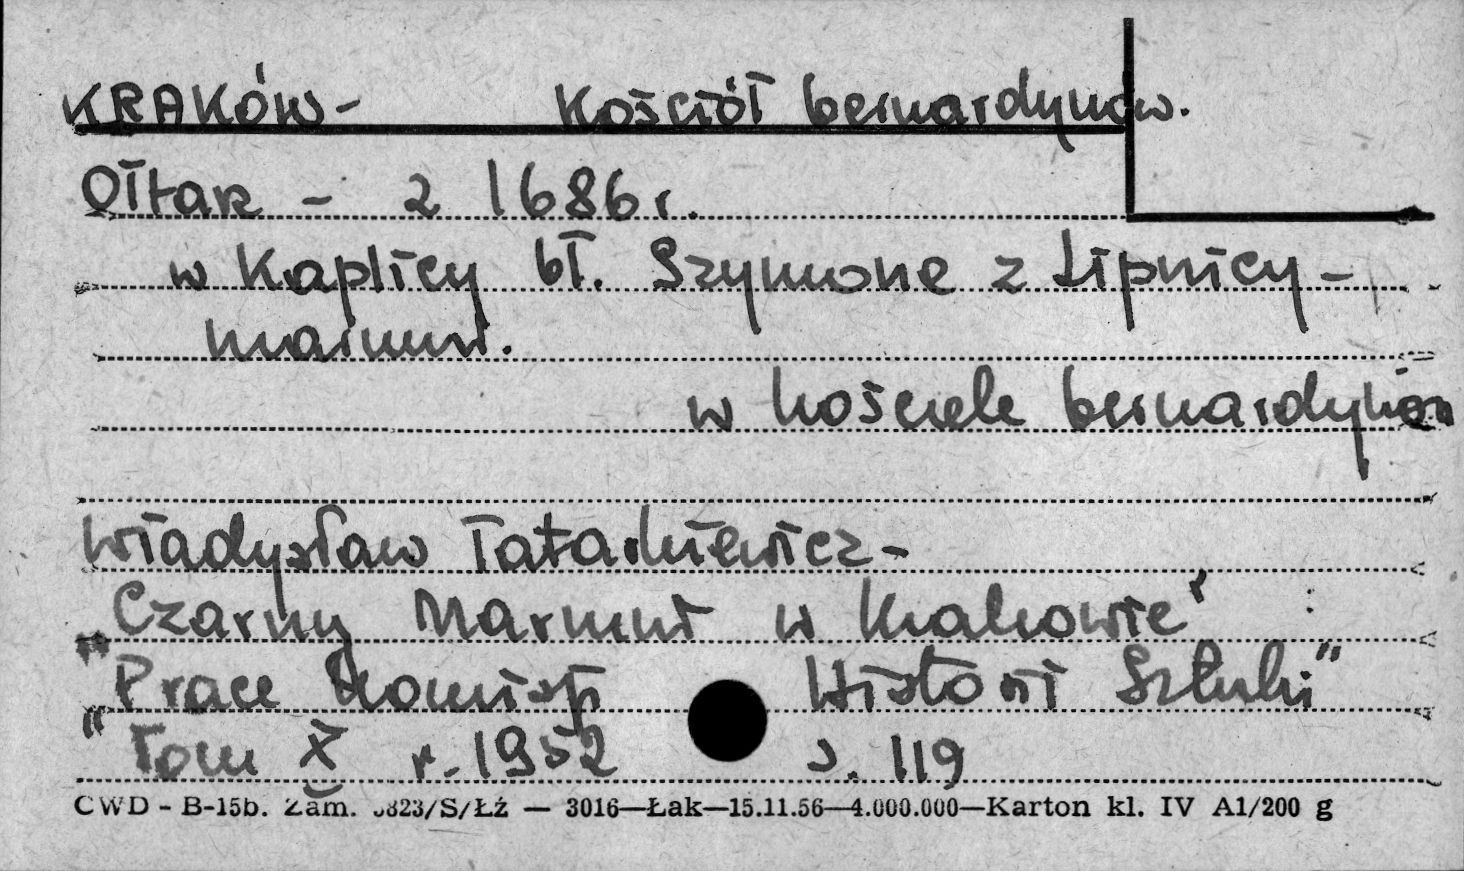 KRAKÓW - Kościół bernardynów.
Ołtarz - z 1686 r.
w Kaplicy bł. Szymona z Lipnicy -
marmur.
w kościele bernardynów
Władysław Tatarkiewicz -
„Czarny Marmur w Krakowie" :
„Prace Komisji Historii Sztuki"
Tom X r. 1952 s. 119
CWD - B-15b. Zam. 5823/S/Łź — 3016—Łak—15.11.56—4.000.000—Karton kl. IV A1/200 g